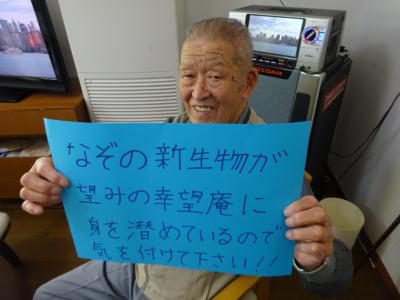 なぞの新生物が
望みの幸望庵に
身を潜めているので
気を付けて下さい!!